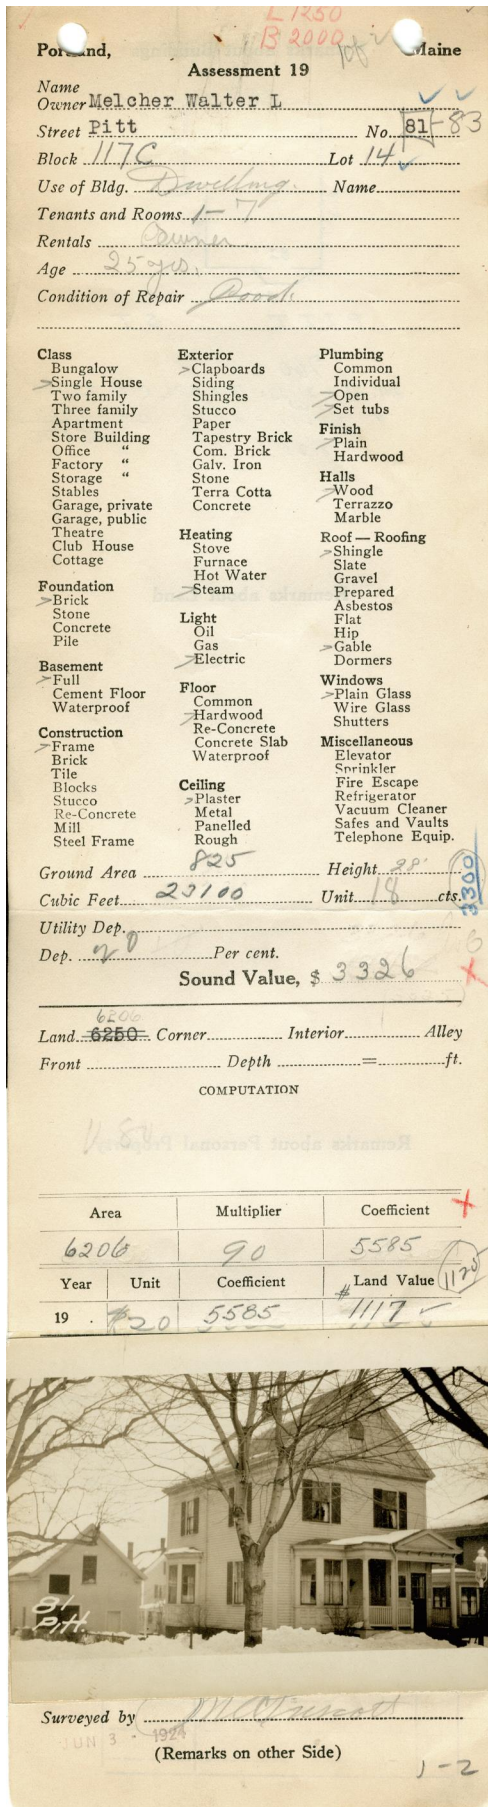 L 1250
B 2000
1 of 2
Portland, Maine
Assessment 19
Name
Owner Melcher Walter L
Street Pitt No. 81-83
Block 117C Lot 14
Use of Bldg. Dwelling. Name
Tenants and Rooms 1-7
Rentals Owner
Age 25 yrs.
Condition of Repair Good.
Class
Bungalow
Single House
Two family
Three family
Apartment
Store Building
Office "
Factory "
Storage "
Stables
Garage, private
Garage, public
Theatre
Club House
Cottage
Foundation
Brick
Stone
Concrete
Pile
Basement
Full
Cement Floor
Waterproof
Construction
Frame
Brick
Tile
Blocks
Stucco
Re-Concrete
Mill
Steel Frame
Exterior
Clapboards
Siding
Shingles
Stucco
Paper
Tapestry Brick
Com. Brick
Galv. Iron
Stone
Terra Cotta
Concrete
Heating
Stove
Furnace
Hot Water
Steam
Light
Oil
Gas
Electric
Floor
Common
Hardwood
Re-Concrete
Concrete Slab
Waterproof
Ceiling
Plaster
Metal
Panelled
Rough
Plumbing
Common
Individual
Open
Set tubs
Finish
Plain
Hardwood
Halls
Wood
Terrazzo
Marble
Roof — Roofing
Shingle
Slate
Gravel
Prepared
Asbestos
Flat
Hip
Gable
Dormers
Windows
Plain Glass
Wire Glass
Shutters
Miscellaneous
Elevator
Sprinkler
Fire Escape
Refrigerator
Vacuum Cleaner
Safes and Vaults
Telephone Equip.
Ground Area 825 Height 28'
Cubic Feet 23100 Unit 18 cts.
3300
Utility Dep.
Dep. 20 Per cent.
Sound Value, $ 3326
6206
Land 6250 Corner Interior Alley
Front Depth = ft.
COMPUTATION
Area Multiplier Coefficient
6206 90 5585
Year Unit Coefficient Land Value 1120
19 . $20 5585 $1117
81
Pitt.
Surveyed by
JUN 3 - 1924
(Remarks on other Side)
1-2